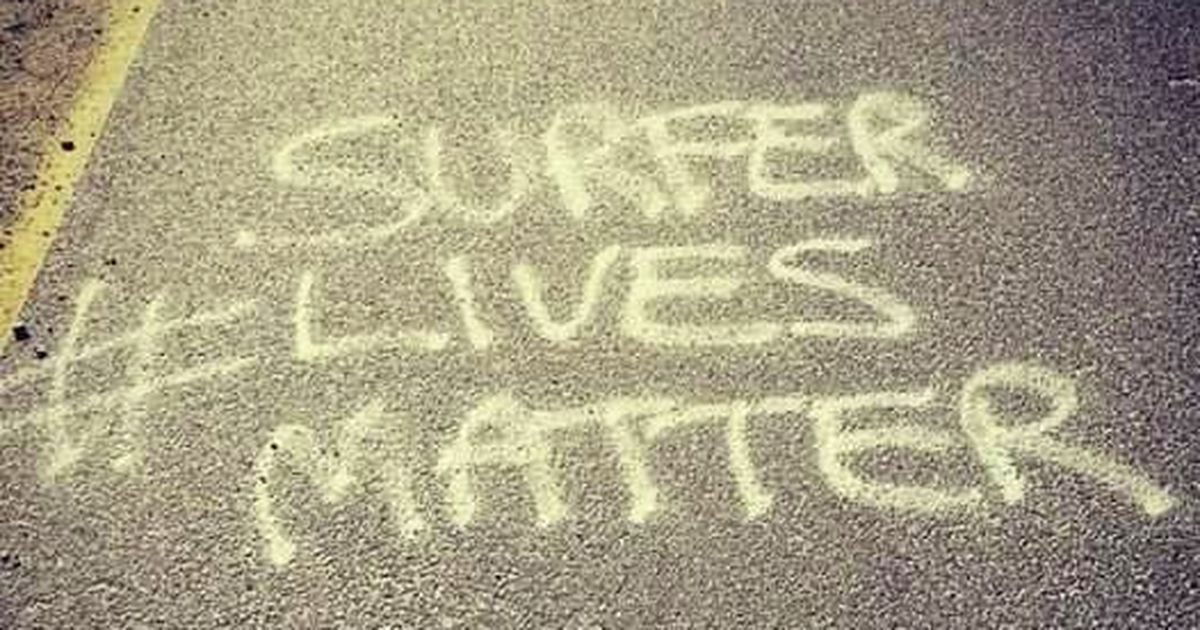 SURFER
# LIVES
MATTER